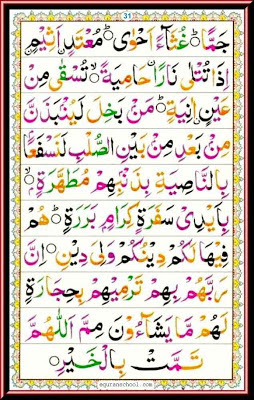 31
جَمًّا ۞ غُثَآءً اَحْوٰى ۞ مُعْتَدٍ اَثِيْمٍ
اِذَا تُتْلٰى نَارًا حَامِيَةً ۞ تُسْقٰى مِنْ
عَيْنٍ اٰنِيَةٍ ۞ مَنْۢ بَخِلَ لَيُنْۢبَذَنَّ
مِنْۢ بَعْدِ مِنْۢ بَيْنِ الصُّلْبِ لَنَسْفَعًۢا
بِالنَّاصِيَةِ بِذَنْۢبِهِمْ مُطَهَّرَةٍۭ ۞
بِاَيْدِيْ سَفَرَةٍ كِرَامٍۭ بَرَرَةٍ ۞ هُمْ
فِيْهَا لَكُمْ دِيْنُكُمْ وَلِيَ دِيْنِ ۞ اِنَّ
رَبَّهُمْ بِهِمْ تَرْمِيْهِمْ بِحِجَارَةٍ
لَهُمْ مَّا يَشَآءُوْنَ مِمَّ اللّٰهُمَّ
تَمَّتْ بِالْخَيْرِ
equranschool.com